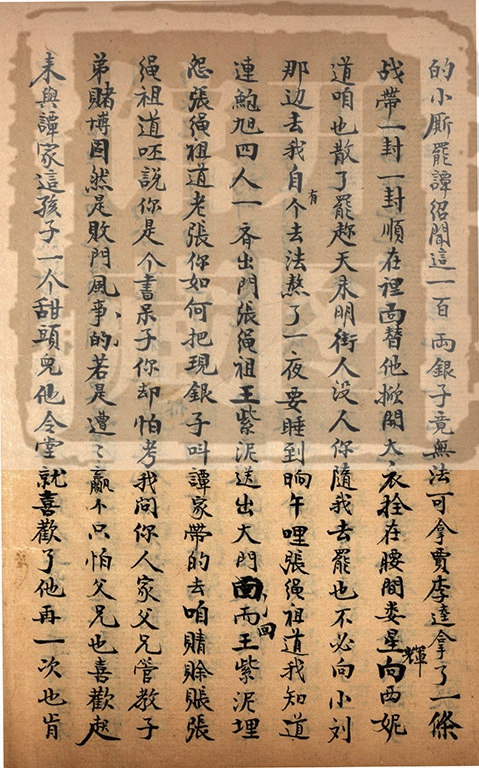 的小厮罷譚紹聞這一百両銀子竟無法可拿賈李逵拿了一條
战帶一封一封順在裡面替他掀開大衣拴在腰間婁星輝向西妮
道咱也散了罷趂天未明街人没人你隨我去罷也不必向小刘
那边去我自有个去法熬了一夜要睡到晌午哩張绳祖道我知道
連鮑旭四人一斉出門張绳祖王紫泥送出大門面囬而王紫泥埋
怨張绳祖道老張你如何把現銀子叫譚家帶的去咱賭賖賬張
绳祖道呸説你是个書呆子你却怕考我问你人家父兄管教子
弟賭博固然是敗門風事的若是遭遭赢不只怕父兄也喜歡赵
来與譚家這孩子一个甜頭兒他令堂就喜歡了他再一次也肯